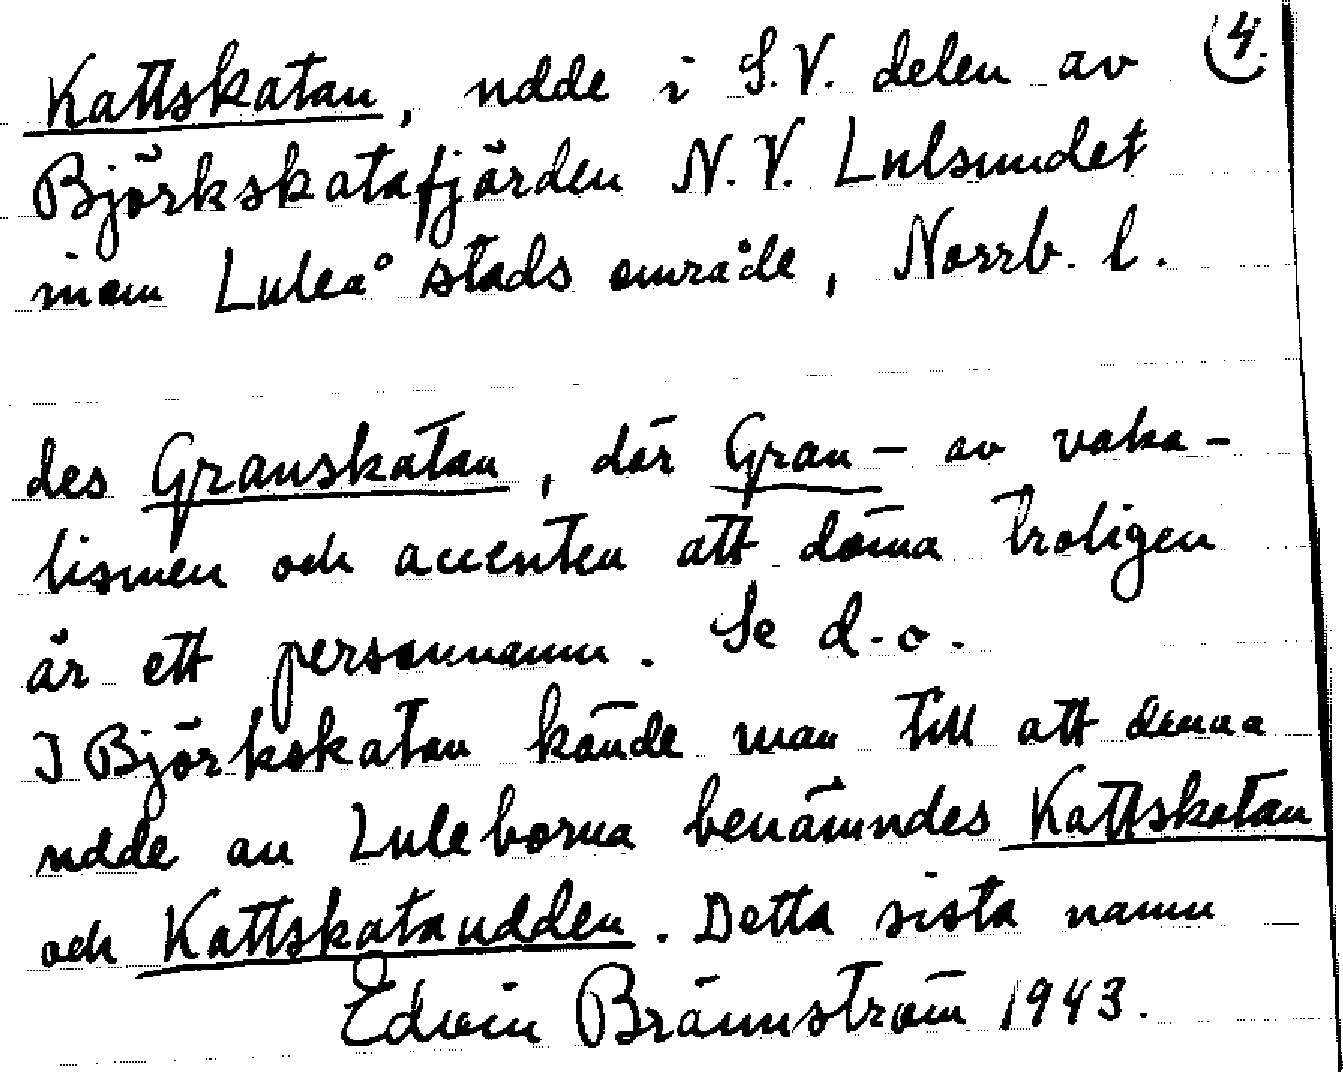 Kattskatan, udde i S.V. delen av (4.
Björkskatafjärden N.V. Lulsundet
inom Luleå stads område, Norrb. l.
des Granskatan, där Gran- av voka-
lismen och accenten att döma troligen
är ett personnamn. Se d.o.
I Björkskatan kände man till att denna
udde av Luleborna benämndes Kattskatan
och Kattskataudden. Detta sista namn —
Edvin Brännström 1943.